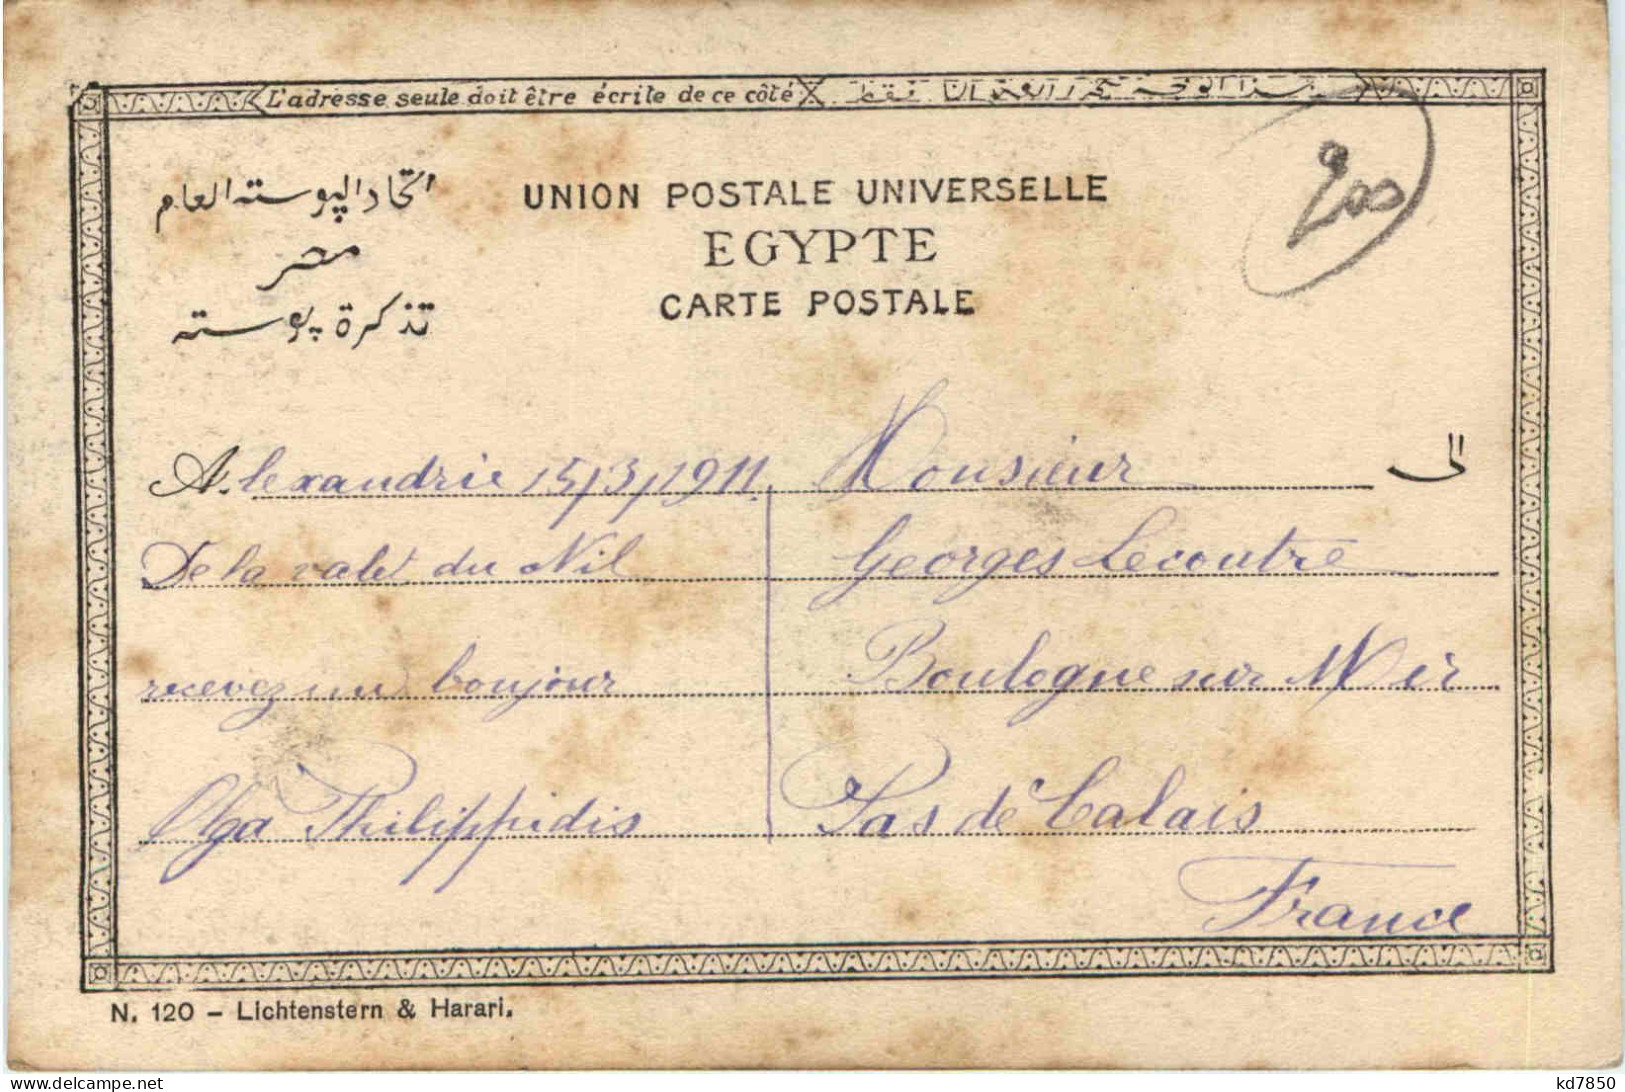 L'adresse seule doit être écrite de ce côté
اتحاد البوسته العام
مصر
تذكرة بوسته
UNION POSTALE UNIVERSELLE
EGYPTE
CARTE POSTALE
200
الى
Alexandrie 15/3/1911.
De la valé du Nil
recevez un bonjour
Olga Philippidis
Monsieur
Georges Lecoutre
Boulogne sur Mer
Pas de Calais
France
N. 120 – Lichtenstern & Harari.
kd7850